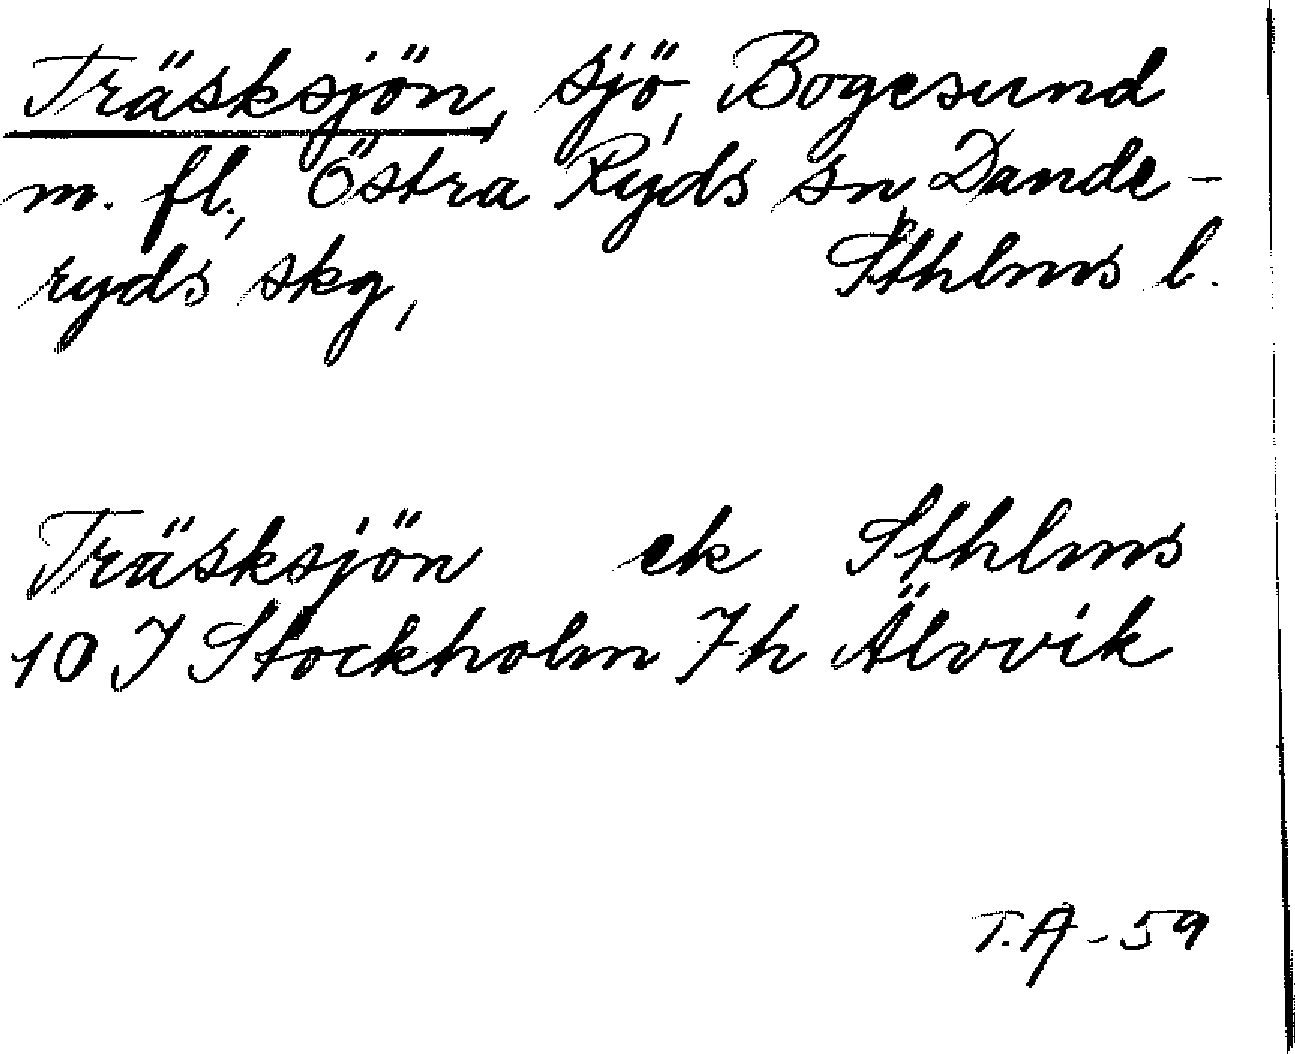 Träsksjön, sjö, Bogesund
m. fl., Östra Ryds sn, Dande-
ryds skg, Sthlms l.
Träsksjön ek Sthlms
10 I Stockholm 7h Älvvik
T.A-59